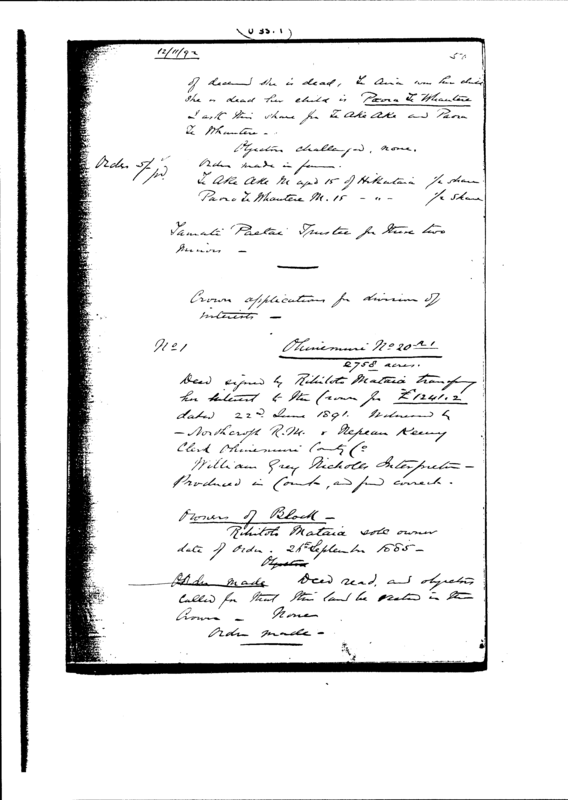 12/11/92
50
of deceased she is dead, Te Aria was her child
she is dead her child is Paora Te Whautere
I ask this share for Te Ake Ake and Paora
Te Whautere -
Objectors challenged, none.
Order made in favour.
Te Ake Ake M aged 15 of Hikutaia 1/2 share
Paora Te Whautere M. 15 - " - 1/2 share
Tamati Paetai Trustee for these two
minors -
Crown applications for division of
interests -
No 1
Ohinemuri No 20
2758 acres.
Deed signed by Rihitoto Mataia
her interest to the Crown for £1241.2
dated 22nd June 1891. Witnessed by
- Northcroft R.M. & Nepean Kenny
Clerk Ohinemuri County Co
William Grey Nicholls Interpreter -
Produced in Court, and found correct.
Owners of Block -
Rihitoto Mataia sole owner
date of Order. September 1885 -
Order made Deed read, and objectors
called for that this land be vested in the
Crown - None
Order made -